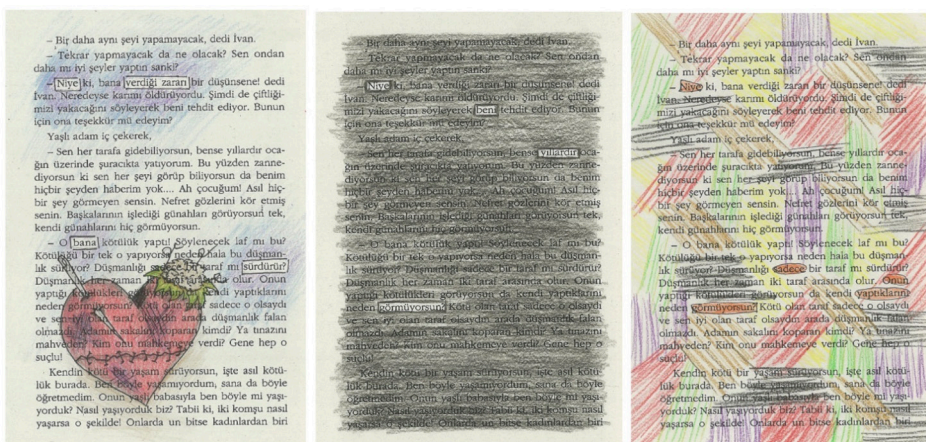 – Bir daha aynı şeyi yapamayacak, dedi İvan.
– Tekrar yapmayacak da ne olacak? Sen ondan
daha mı iyi şeyler yaptın sanki?
– Niye ki, bana verdiği zararı bir düşünsene! dedi
İvan. Neredeyse karımı öldürüyordu. Şimdi de çiftliği-
mizi yakacağını söyleyerek beni tehdit ediyor. Bunun
için ona teşekkür mü edeyim?
Yaşlı adam iç çekerek,
– Sen her tarafa gidebiliyorsun, bense yıllardır oca-
ğın üzerinde şuracıkta yatıyorum. Bu yüzden zanne-
diyorsun ki sen her şeyi görüp biliyorsun da benim
hiçbir şeyden haberim yok.... Ah çocuğum! Asıl hiç-
bir şey görmeyen sensin. Nefret gözlerini kör etmiş
senin. Başkalarının işlediği günahları görüyorsun tek,
kendi günahlarını hiç görmüyorsun.
– O bana kötülük yaptı! Söylenecek laf mı bu?
Kötülüğü bir tek o yapıyorsa neden hala bu düşman-
lık sürüyor? Düşmanlığı taraf mı sürdürür?
Düşmanlık olur. Onun
yaptığı kendi yaptıklarını
neden görmüyorsun? Kötü olan taraf sadece o olsaydı
ve sen iyi olan taraf olsaydın arada düşmanlık falan
olmazdı. Adamın sakalını koparan kimdi? Ya tınazını
mahveden? Kim onu mahkemeye verdi? Gene hep o
suçlu!
Kendin kötü bir yaşam sürüyorsun, işte asıl kötü-
lük burada. Ben böyle yaşamıyordum, sana da böyle
öğretmedim. Onun yaşlı babasıyla ben böyle mi yaşı-
yorduk? Nasıl yaşıyorduk biz? Tabii ki, iki komşu nasıl
yaşarsa o şekilde! Onlarda un bitse kadınlardan biri
– Bir daha aynı şeyi yapamayacak, dedi İvan.
– Tekrar yapmayacak da ne olacak? Sen ondan
daha mı iyi şeyler yaptın sanki?
– Niye ki, bana verdiği zararı bir düşünsene! dedi
İvan. Neredeyse karımı öldürüyordu. Şimdi de çiftliği-
mizi yakacağını söyleyerek beni tehdit ediyor. Bunun
için ona teşekkür mü edeyim?
Yaşlı adam iç çekerek,
– Sen her tarafa gidebiliyorsun, bense yıllardır oca-
ğın üzerinde şuracıkta yatıyorum. Bu yüzden zanne-
diyorsun ki sen her şeyi görüp biliyorsun da benim
hiçbir şeyden haberim yok.... Ah çocuğum! Asıl hiç-
bir şey görmeyen sensin. Nefret gözlerini kör etmiş
senin. Başkalarının işlediği günahları görüyorsun tek,
kendi günahlarını hiç görmüyorsun.
– O bana kötülük yaptı! Söylenecek laf mı bu?
Kötülüğü bir tek o yapıyorsa neden hala bu düşman-
lık sürüyor? Düşmanlığı sadece bir taraf mı sürdürür?
Düşmanlık her zaman iki taraf arasında olur. Onun
yaptığı kötülükleri görüyorsun da kendi yaptıklarını
neden görmüyorsun? Kötü olan taraf sadece o olsaydı
ve sen iyi olan taraf olsaydın arada düşmanlık falan
olmazdı. Adamın sakalını koparan kimdi? Ya tınazını
mahveden? Kim onu mahkemeye verdi? Gene hep o
suçlu!
Kendin kötü bir yaşam sürüyorsun, işte asıl kötü-
lük burada. Ben böyle yaşamıyordum, sana da böyle
öğretmedim. Onun yaşlı babasıyla ben böyle mi yaşı-
yorduk? Nasıl yaşıyorduk biz? Tabii ki, iki komşu nasıl
yaşarsa o şekilde! Onlarda un bitse kadınlardan biri
– Bir daha aynı şeyi yapamayacak, dedi İvan.
– Tekrar yapmayacak da ne olacak? Sen ondan
daha mı iyi şeyler yaptın sanki?
– Niye ki, bana verdiği zararı bir düşünsene! dedi
İvan. Neredeyse karımı öldürüyordu. Şimdi de çiftliği-
mizi yakacağını söyleyerek beni tehdit ediyor. Bunun
için ona teşekkür mü edeyim?
Yaşlı adam iç çekerek,
– Sen her tarafa gidebiliyorsun, bense yıllardır oca-
ğın üzerinde şuracıkta yatıyorum. Bu yüzden zanne-
diyorsun ki sen her şeyi görüp biliyorsun da benim
hiçbir şeyden haberim yok.... Ah çocuğum! Asıl hiç-
bir şey görmeyen sensin. Nefret gözlerini kör etmiş
senin. Başkalarının işlediği günahları görüyorsun tek,
kendi günahlarını hiç görmüyorsun.
– O bana kötülük yaptı! Söylenecek laf mı bu?
Kötülüğü bir tek o yapıyorsa neden hala bu düşman-
lık sürüyor? Düşmanlığı sadece bir taraf mı sürdürür?
Düşmanlık her zaman iki taraf arasında olur. Onun
yaptığı kötülükleri görüyorsun da kendi yaptıklarını
neden görmüyorsun? Kötü olan taraf sadece o olsaydı
ve sen iyi olan taraf olsaydın arada düşmanlık falan
olmazdı. Adamın sakalını koparan kimdi? Ya tınazını
mahveden? Kim onu mahkemeye verdi? Gene hep o
suçlu!
Kendin kötü bir yaşam sürüyorsun, işte asıl kötü-
lük burada. Ben böyle yaşamıyordum, sana da böyle
öğretmedim. Onun yaşlı babasıyla ben böyle mi yaşı-
yorduk? Nasıl yaşıyorduk biz? Tabii ki, iki komşu nasıl
yaşarsa o şekilde! Onlarda un bitse kadınlardan biri